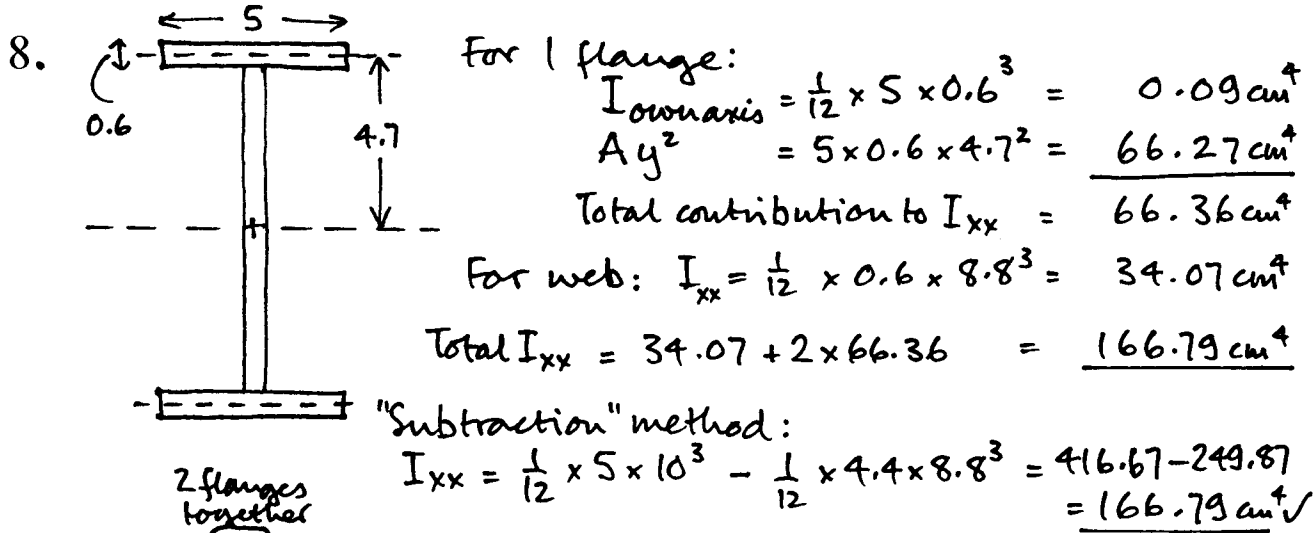 8.
5
0.6
4.7
For 1 flange:
I own axis = 1/12 × 5 × 0.6³ = 0.09 cm⁴
Ay² = 5×0.6×4.7² = 66.27 cm⁴
Total contribution to Ixx = 66.36 cm⁴
For web: Ixx = 1/12 × 0.6 × 8.8³ = 34.07 cm⁴
Total Ixx = 34.07 + 2×66.36 = 166.79 cm⁴
"Subtraction" method:
Ixx = 1/12 × 5 × 10³ − 1/12 × 4.4 × 8.8³ = 416.67−249.87
= 166.79 cm⁴ ✓
2 flanges
together